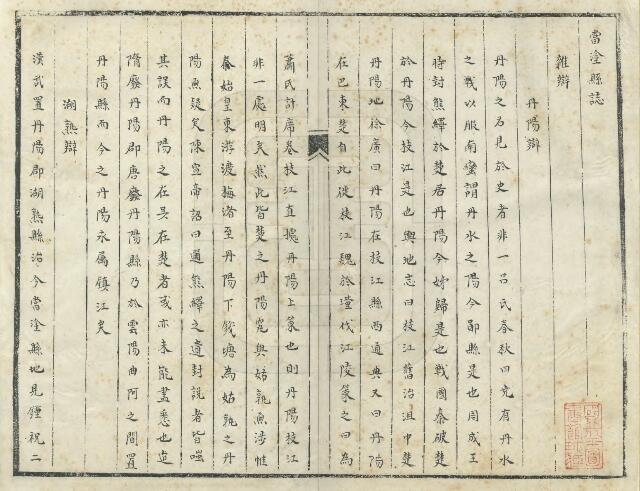 當塗縣誌
雜辯
丹陽辯
丹陽之名見於史者非一呂氏春秋曰堯有丹水
之戰以服南蠻謂丹水之陽今鄖縣是也周成王
時封熊繹於楚居丹陽今姊歸是也戰國秦破楚
於丹陽今枝江是也輿地志曰枝江舊治沮中楚
丹陽地徐廣曰丹陽在枝江縣西通典又曰丹陽
在巴東楚自此徙枝江魏於瑾伐江陵策之曰為
蕭氏計席卷枝江直據丹陽上策也則丹陽枝江
非一處明矣然此皆楚之丹陽究與姑孰無涉惟
秦始皇東游渡梅渚至丹陽下錢塘為姑孰之丹
陽無疑矣陳宣帝詔曰通熊繹之遺封說者皆嗤
其誤而丹陽之在吳在楚者或亦未能盡悉也迨
隋廢丹陽郡唐廢丹陽縣乃於雲陽曲阿之間置
丹陽縣而今之丹陽永屬鎮江矣
湖熟辯
漢武置丹陽郡湖熟縣治今當塗縣地見鍾祝二